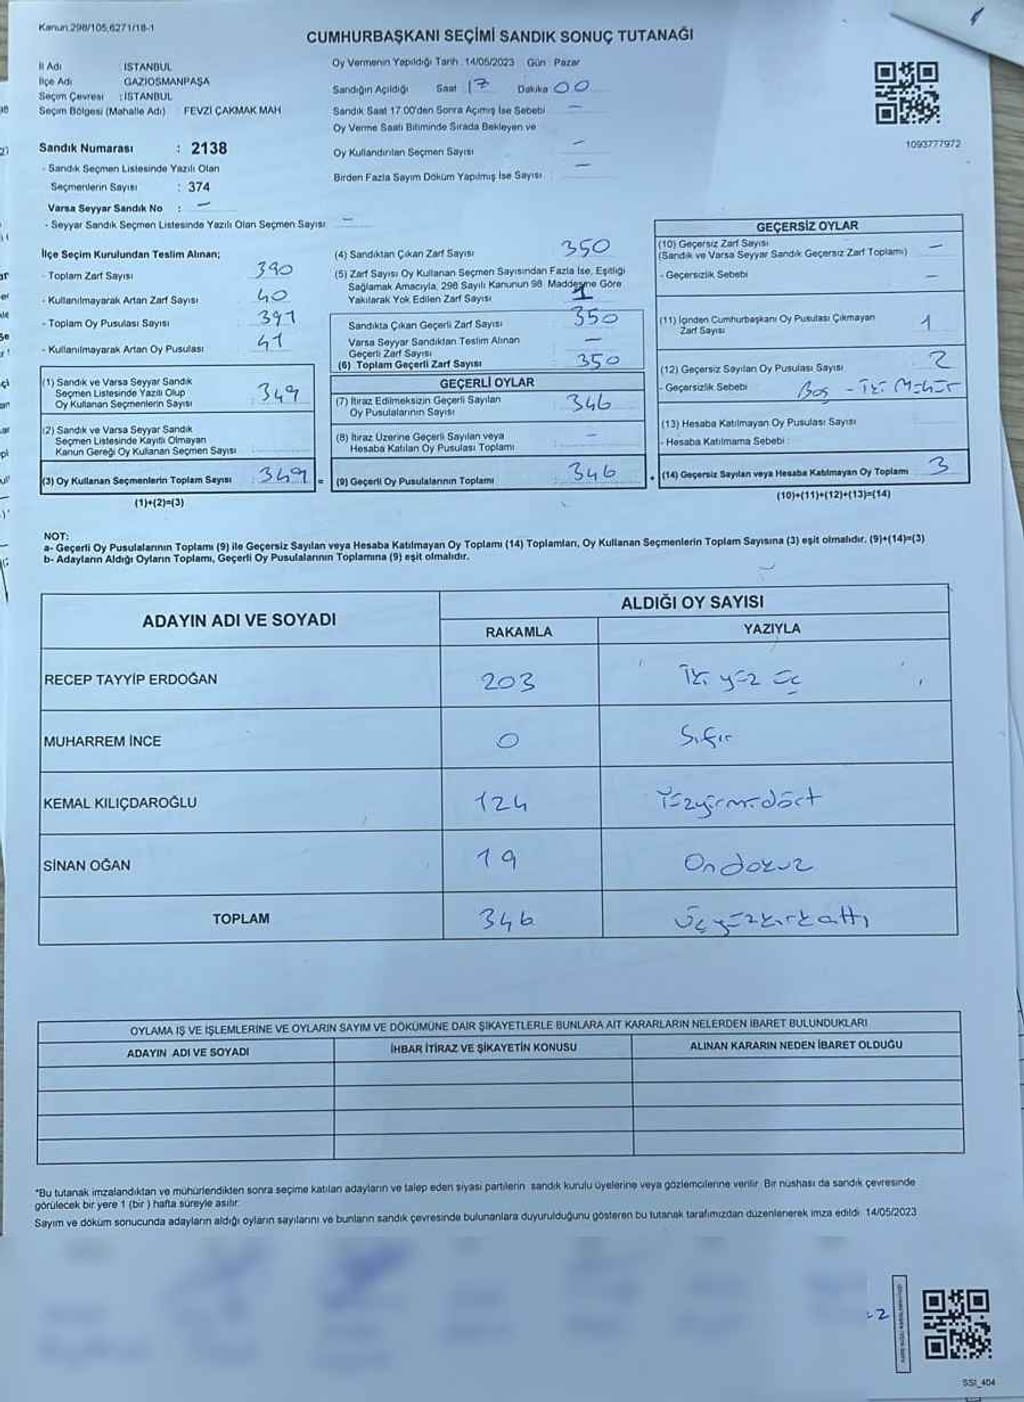 Kanun.298/105,6271/18-1
CUMHURBAŞKANI SEÇİMİ SANDIK SONUÇ TUTANAĞI
İl Adı : İSTANBUL
İlçe Adı : GAZİOSMANPAŞA
Seçim Çevresi : İSTANBUL
Seçim Bölgesi (Mahalle Adı) : FEVZİ ÇAKMAK MAH
Sandık Numarası : 2138
- Sandık Seçmen Listesinde Yazılı Olan
Seçmenlerin Sayısı : 374
Varsa Seyyar Sandık No : —
- Seyyar Sandık Seçmen Listesinde Yazılı Olan Seçmen Sayısı : —
Oy Vermenin Yapıldığı Tarih : 14/05/2023 Gün : Pazar
Sandığın Açıldığı Saat 17 Dakika 00
Sandık Saat 17.00'den Sonra Açımış İse Sebebi —
Oy Verme Saati Bitiminde Sırada Bekleyen ve
Oy Kullandırılan Seçmen Sayısı —
Birden Fazla Sayım Döküm Yapılmış İse Sayısı —
1093777972
İlçe Seçim Kurulundan Teslim Alınan;
- Toplam Zarf Sayısı 390
- Kullanılmayarak Artan Zarf Sayısı 40
- Toplam Oy Pusulası Sayısı 391
- Kullanılmayarak Artan Oy Pusulası 41
(1) Sandık ve Varsa Seyyar Sandık
Seçmen Listesinde Yazılı Olup
Oy Kullanan Seçmenlerin Sayısı 349
(2) Sandık ve Varsa Seyyar Sandık
Seçmen Listesinde Kayıtlı Olmayan
Kanun Gereği Oy Kullanan Seçmen Sayısı
(3) Oy Kullanan Seçmenlerin Toplam Sayısı 349 =
(1)+(2)=(3)
(4) Sandıktan Çıkan Zarf Sayısı 350
(5) Zarf Sayısı Oy Kullanan Seçmen Sayısından Fazla İse, Eşitliği
Sağlamak Amacıyla, 298 Sayılı Kanunun 98. Maddesine Göre
Yakılarak Yok Edilen Zarf Sayısı 1
Sandıkta Çıkan Geçerli Zarf Sayısı 350
Varsa Seyyar Sandıktan Teslim Alınan
Geçerli Zarf Sayısı —
(6) Toplam Geçerli Zarf Sayısı 350
GEÇERLİ OYLAR
(7) İtiraz Edilmeksizin Geçerli Sayılan
Oy Pusulalarının Sayısı 346
(8) İtiraz Üzerine Geçerli Sayılan veya
Hesaba Katılan Oy Pusulası Toplamı —
(9) Geçerli Oy Pusulalarının Toplamı 346 +
GEÇERSİZ OYLAR
(10) Geçersiz Zarf Sayısı —
(Sandık ve Varsa Seyyar Sandık Geçersiz Zarf Toplamı)
- Geçersizlik Sebebi —
(11) İçinden Cumhurbaşkanı Oy Pusulası Çıkmayan
Zarf Sayısı 1
(12) Geçersiz Sayılan Oy Pusulası Sayısı 2
- Geçersizlik Sebebi Boş - İki Mühür
(13) Hesaba Katılmayan Oy Pusulası Sayısı
- Hesaba Katılmama Sebebi :
(14) Geçersiz Sayılan veya Hesaba Katılmayan Oy Toplamı 3
(10)+(11)+(12)+(13)=(14)
NOT:
a- Geçerli Oy Pusulalarının Toplamı (9) ile Geçersiz Sayılan veya Hesaba Katılmayan Oy Toplamı (14) Toplamları, Oy Kullanan Seçmenlerin Toplam Sayısına (3) eşit olmalıdır. (9)+(14)=(3)
b- Adayların Aldığı Oyların Toplamı, Geçerli Oy Pusulalarının Toplamına (9) eşit olmalıdır.
ADAYIN ADI VE SOYADI ALDIĞI OY SAYISI
RAKAMLA YAZIYLA
RECEP TAYYİP ERDOĞAN 203 İki yüz üç
MUHARREM İNCE 0 Sıfır
KEMAL KILIÇDAROĞLU 124 Yüzyirmidört
SİNAN OĞAN 19 Ondokuz
TOPLAM 346 Üçyüzkırkaltı
OYLAMA İŞ VE İŞLEMLERİNE VE OYLARIN SAYIM VE DÖKÜMÜNE DAİR ŞİKAYETLERLE BUNLARA AİT KARARLARIN NELERDEN İBARET BULUNDUKLARI
ADAYIN ADI VE SOYADI İHBAR İTİRAZ VE ŞİKAYETİN KONUSU ALINAN KARARIN NEDEN İBARET OLDUĞU
*Bu tutanak imzalandıktan ve mühürlendikten sonra seçime katılan adayların ve talep eden siyasi partilerin sandık kurulu üyelerine veya gözlemcilerine verilir. Bir nüshası da sandık çevresinde
görülecek bir yere 1 (bir) hafta süreyle asılır.
Sayım ve döküm sonucunda adayların aldığı oyların sayılarını ve bunların sandık çevresinde bulunanlara duyurulduğunu gösteren bu tutanak tarafımızdan düzenlenerek imza edildi. 14/05/2023
SSI_404